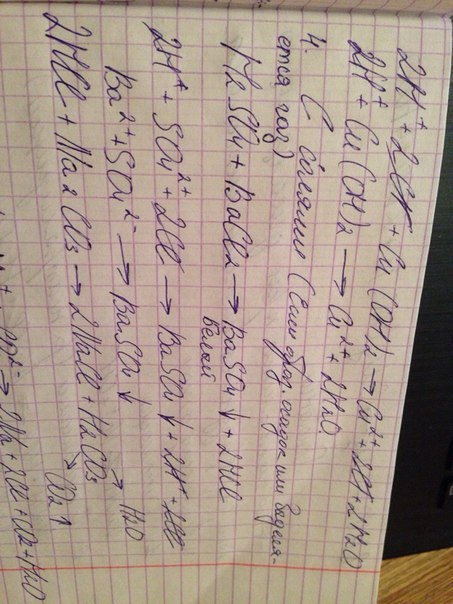 2H⁺ + 2Cl⁻ + Cu(OH)₂ → Cu²⁺ + 2Cl⁻ + 2H₂O
2H⁺ + Cu(OH)₂ → Cu²⁺ + 2H₂O
4. С солями (Если обр. осадок или выделя-
ется газ)
H₂SO₄ + BaCl₂ → BaSO₄↓ + 2HCl
белый
2H⁺ + SO₄²⁺ + 2Cl → BaSO₄↓ + 2H⁺ + 2Cl
Ba²⁺ + SO₄²⁻ → BaSO₄↓
2HCl + Na₂CO₃ → 2NaCl + H₂CO₃
H₂O
CO₂↑
→ 2Na + 2Cl + CO₂ + H₂O